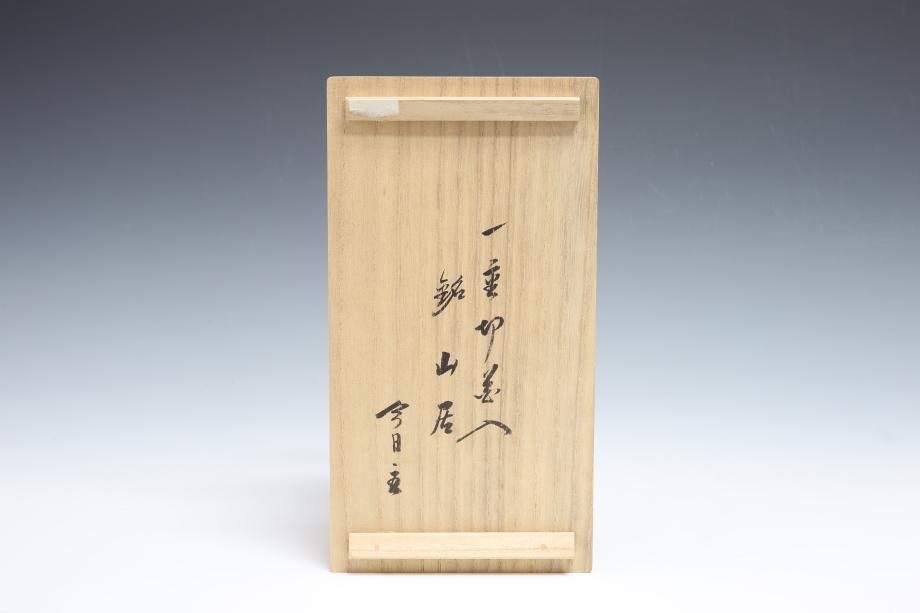 一重切花入
銘山居
今日主